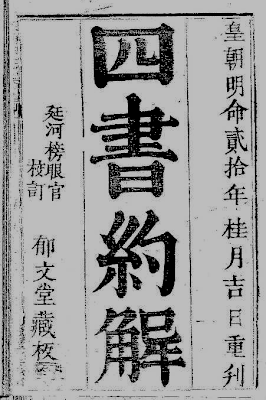 皇朝明命貳拾年桂月吉日重刋
四書約解
延河榜眼官
校訂
郁文堂藏板